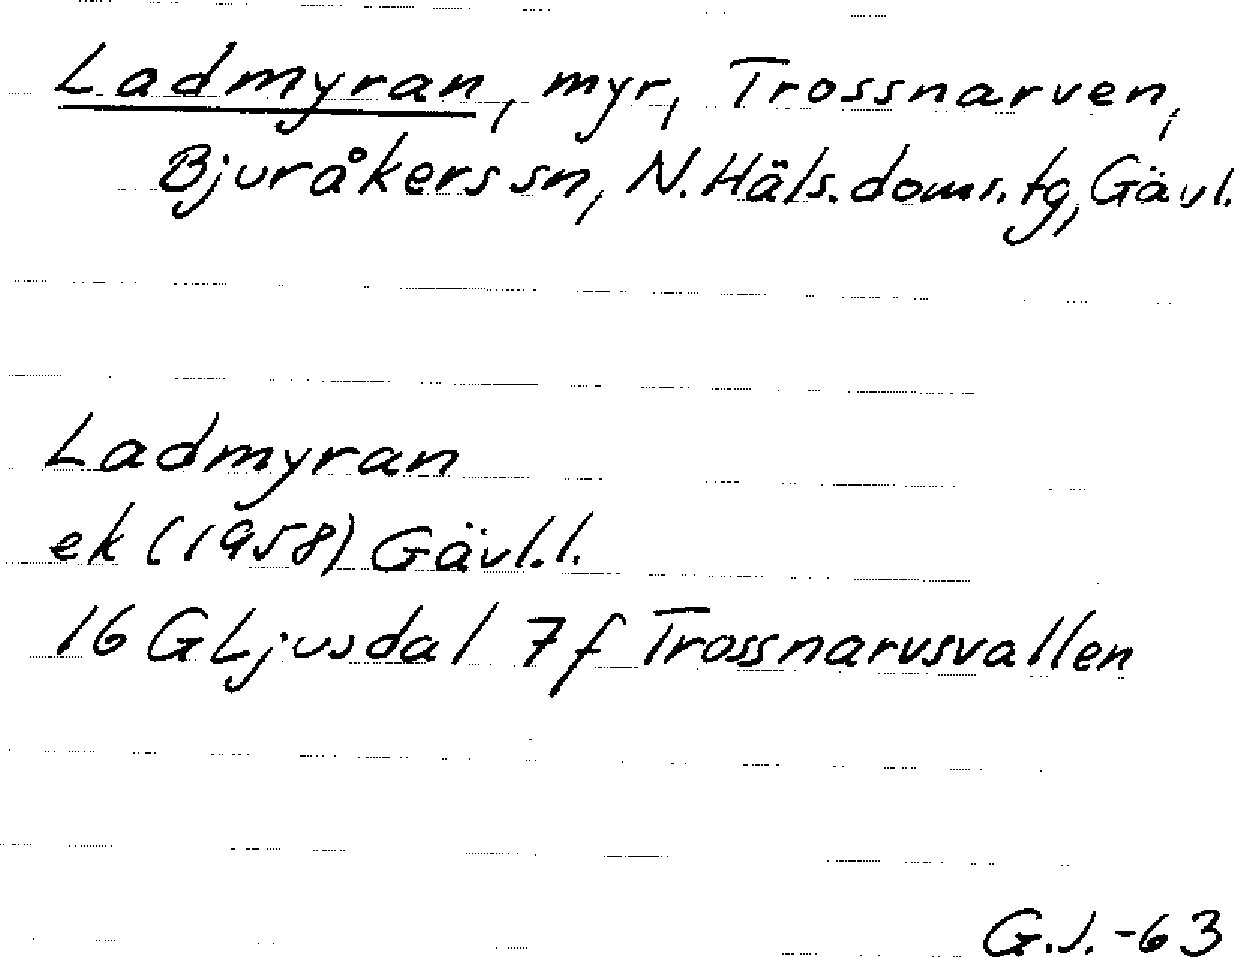 Ladmyran, myr, Trossnarven,
Bjuråkers sn, N. Häls. doms. tg, Gävl.
Ladmyran
ek (1958) Gävl. l.
16 G Ljusdal 7 f Trossnarvsvallen
G.J. -63